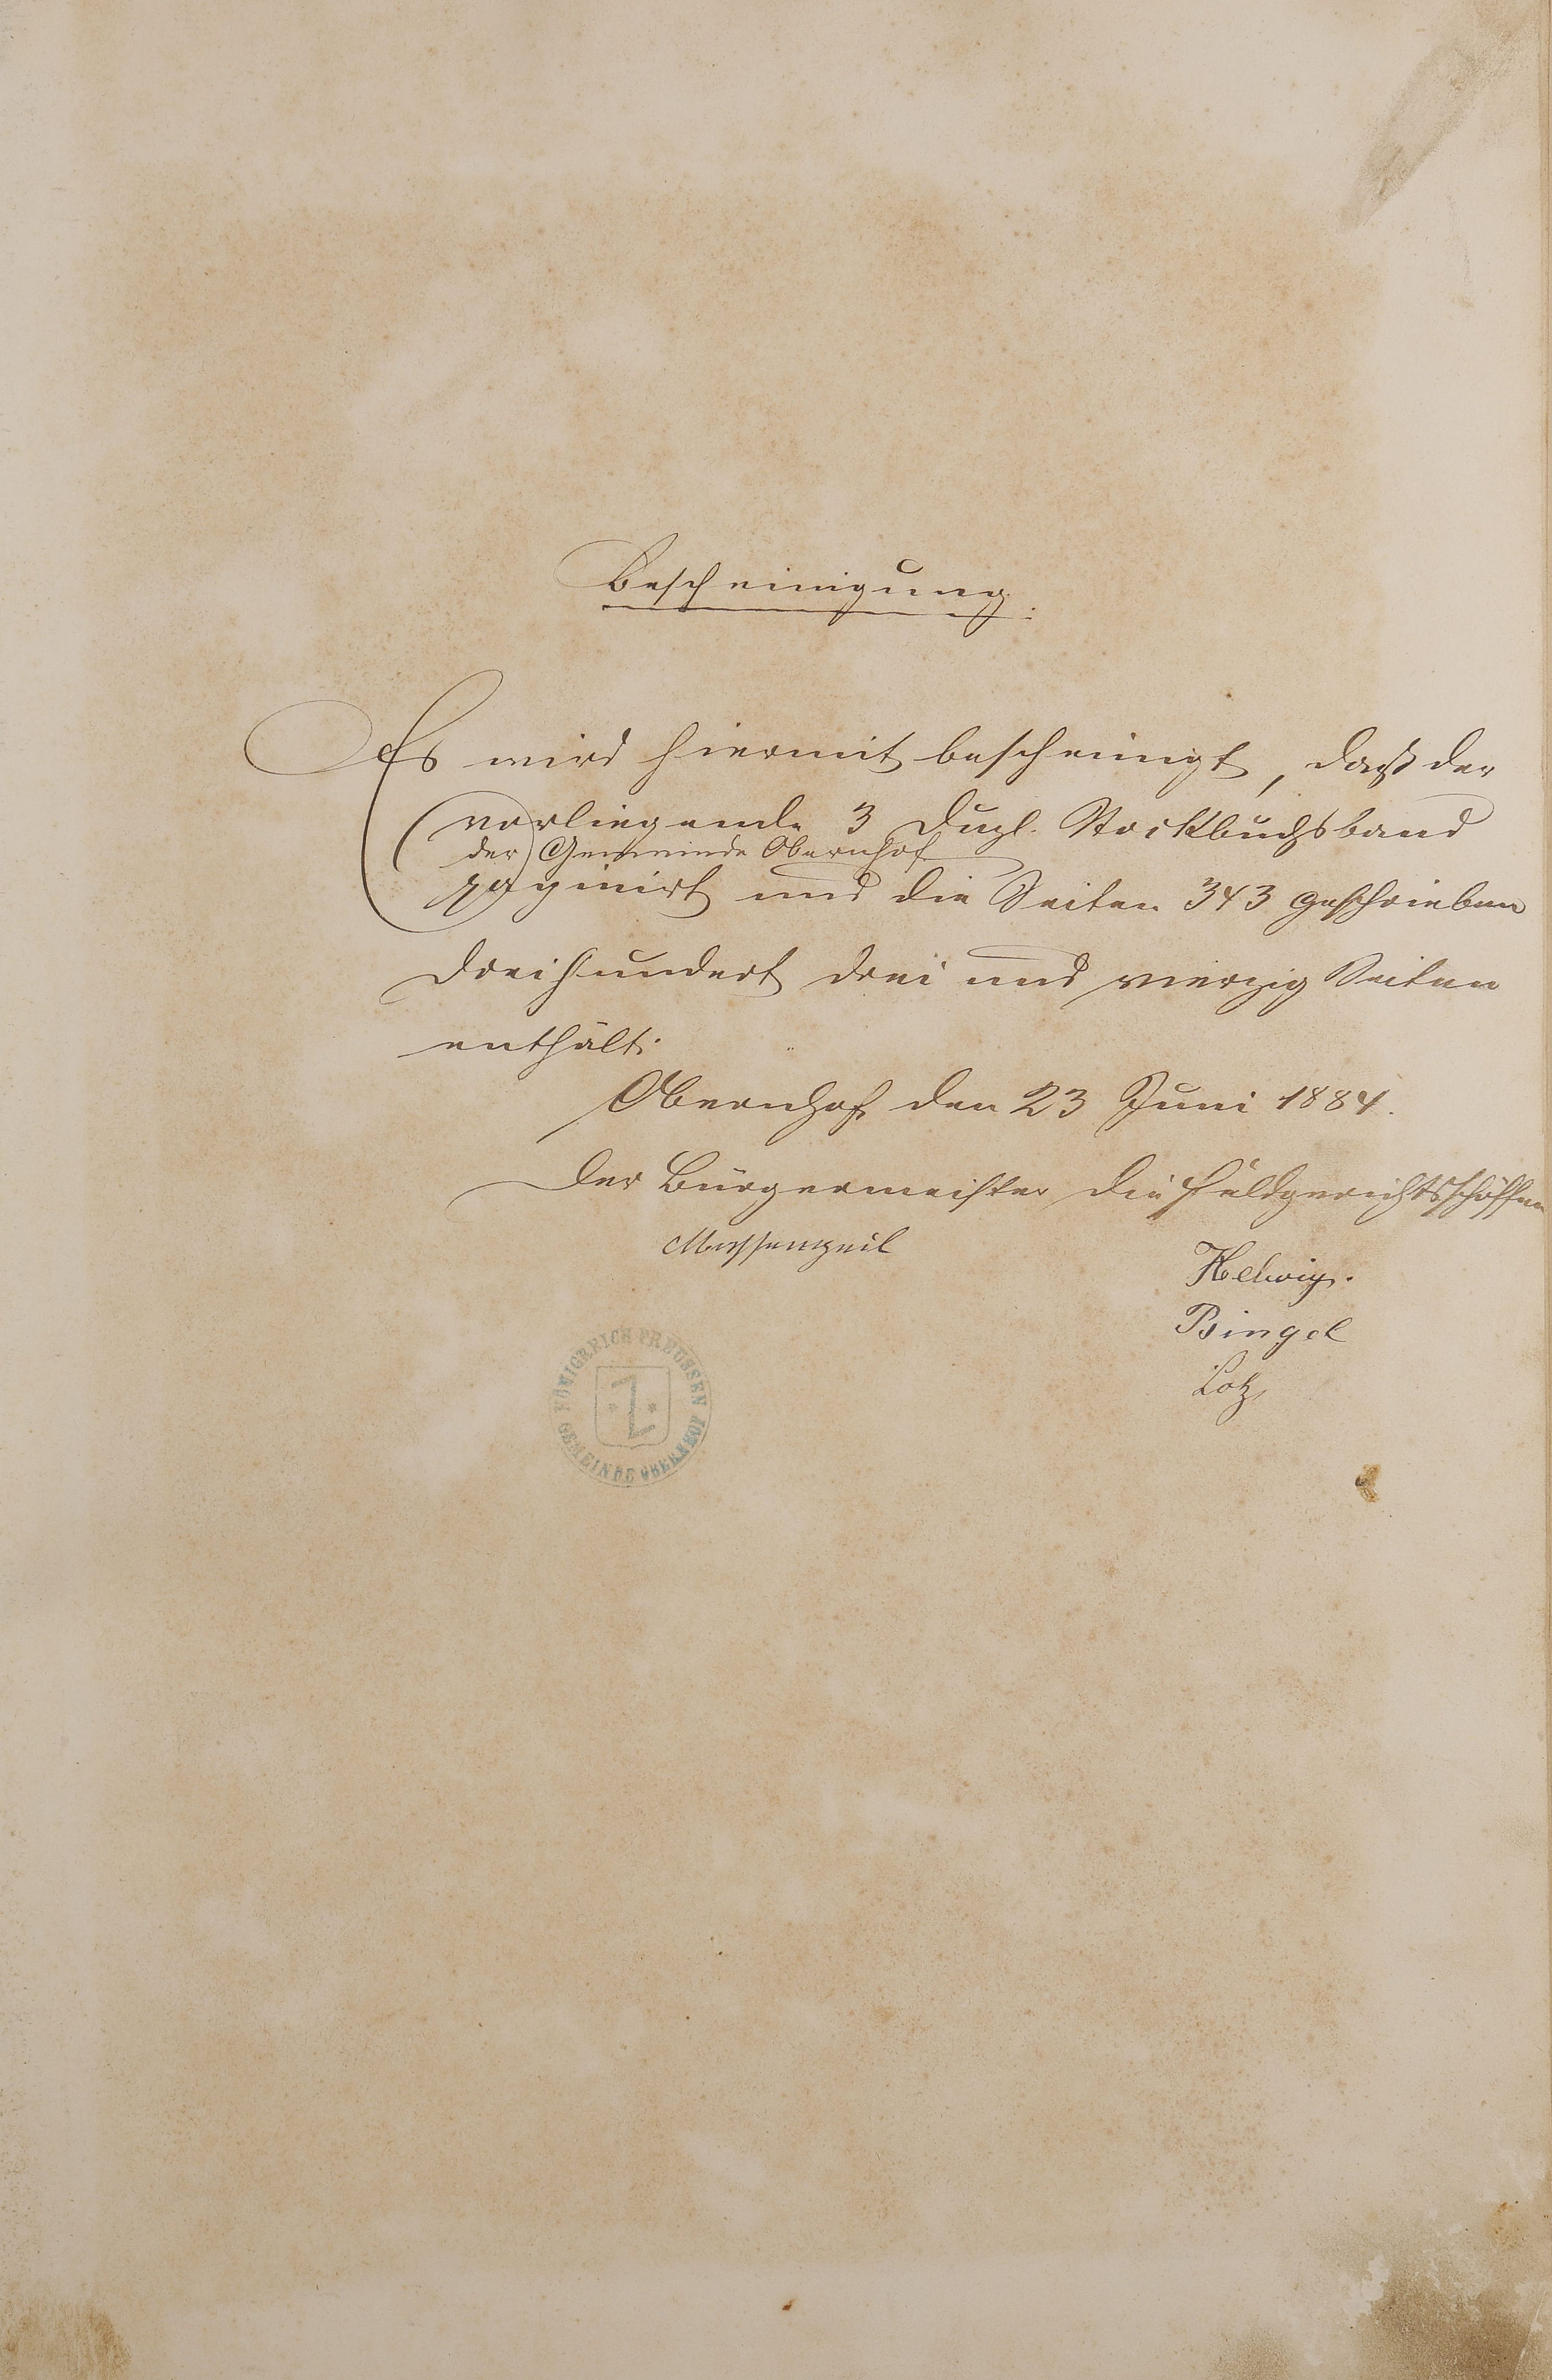 Bescheinigung.
Es wird hiermit bescheinigt, daß der
vorliegende 3 Dupl. Stockbuchsband
der Gemeinde Obernhof
paginirt und die Seiten 343 geschrieben
dreihundert drei und vierzig Seiten
enthält.
Obernhof den 23 Juni 1884.
Der Bürgermeister die Feldgerichtsschöffen
Massengeil
Helwig.
Bingel
Lotz
KÖNIGREICH PREUSSEN
GEMEINDE OBERNHOF